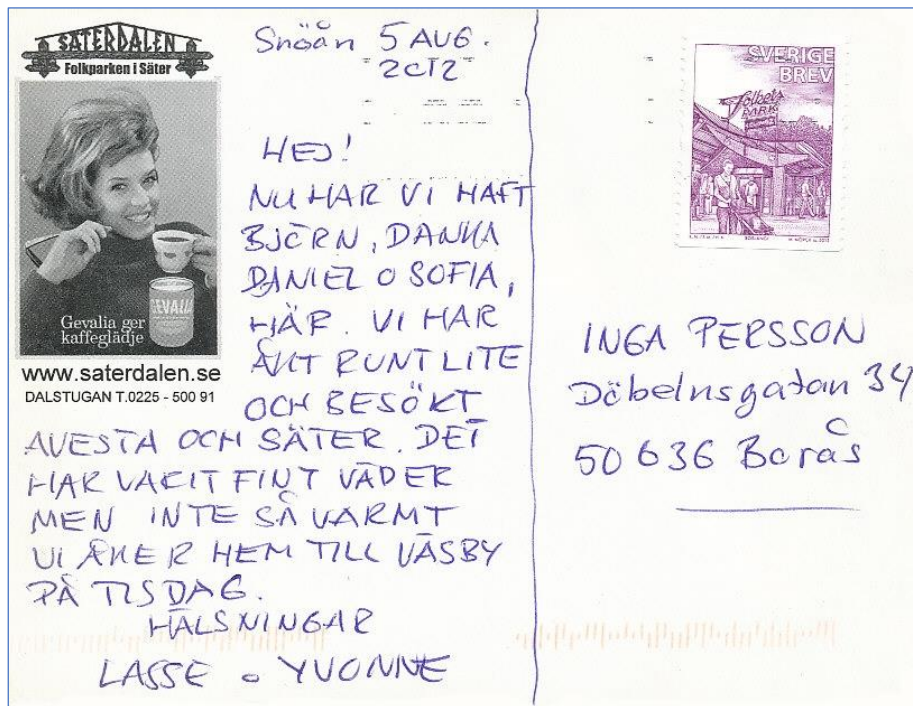 SÄTERDALEN
Folkparken i Säter
GEVALIA
Gevalia ger
kaffeglädje
www.saterdalen.se
DALSTUGAN T.0225 - 500 91
Snöån 5 AUG.
2012
HEJ!
NU HAR VI HAFT
BJÖRN, DANKA
DANIEL O SOFIA,
HÄR. VI HAR
ÅKT RUNT LITE
OCH BESÖKT
AVESTA OCH SÄTER. DET
HAR VARIT FINT VÄDER
MEN INTE SÅ VARMT
VI ÅKER HEM TILL VÄSBY
PÅ TISDAG.
HÄLSNINGAR
LASSE o YVONNE
SVERIGE
BREV
Folkets
PARK
INGA PERSSON
Döbelnsgatan 34
50636 Borås